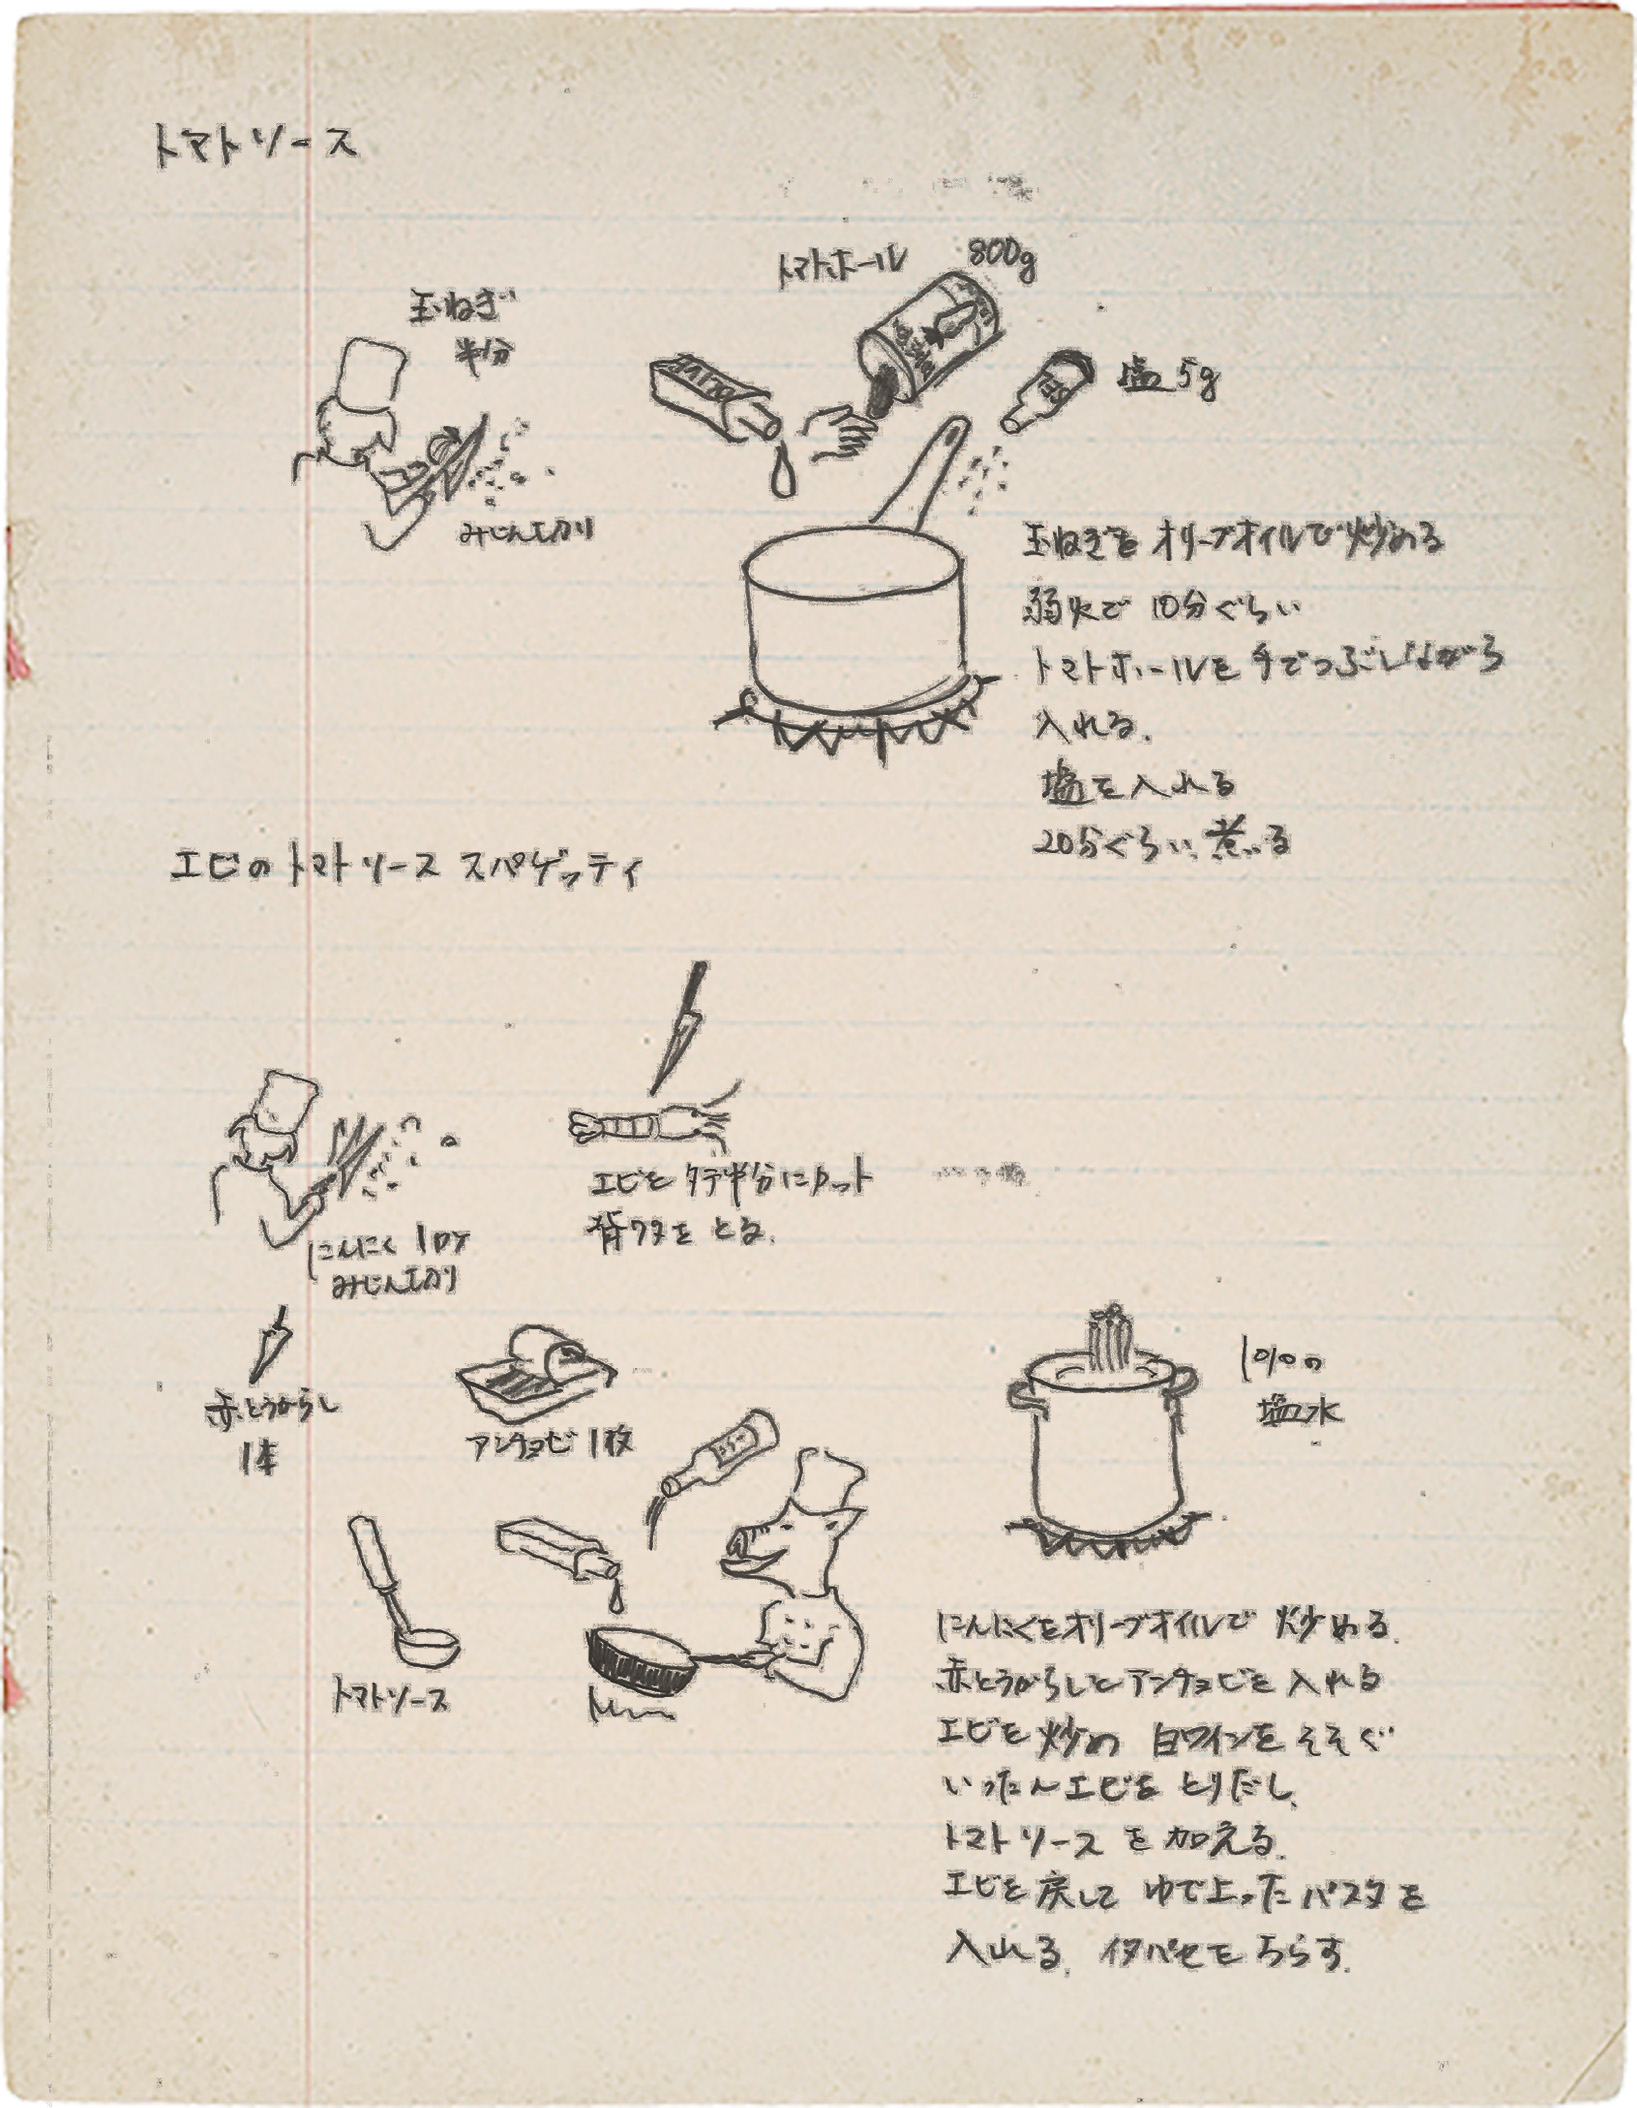 トマトソース
トマトホール 800g
玉ねぎ
半分
塩 5g
みじん切り
玉ねぎを オリーブオイルで炒める
弱火で 10分ぐらい
トマトホールを手でつぶしながら
入れる.
塩を入れる
20分ぐらい 煮る
エビのトマトソース スパゲッティ
エビを タテ半分にカット
背ワタを とる.
にんにく 1ケ
みじん切り
赤とうがらし
1本
アンチョビ 1枚
1%の
塩水
トマトソース
にんにくをオリーブオイルで 炒める.
赤とうがらしとアンチョビを 入れる
エビを 炒め 白ワインを そそぐ
いったんエビを とりだし、
トマトソース を 加える.
エビを 戻して ゆで上ったパスタを
入れる. イタパセを ちらす.